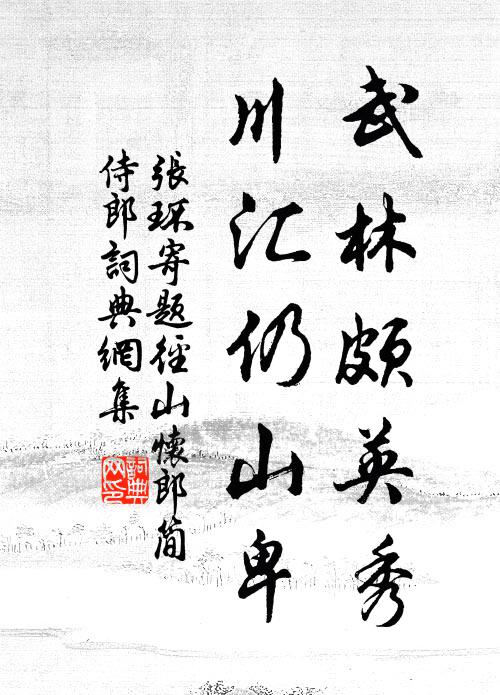 武林頗英秀
川汇仍山卑
張瓌寄題徑山懷郎簡
侍郎詞典網集
詞典网印